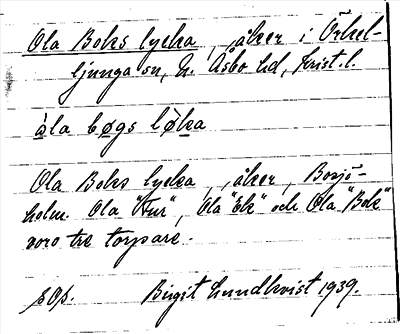 Ola Boks lycka, åker i Örkel-
ljunga sn, N. Åsbo hd, Krist. l.
ala bøgs løka
Ola Boks lycka, åker, Bosjö-
holm. Ola "Fur", Ola "Ek" och Ola "Bok"
voro tre torpare.
sOp. Birgit Lundkvist 1939.